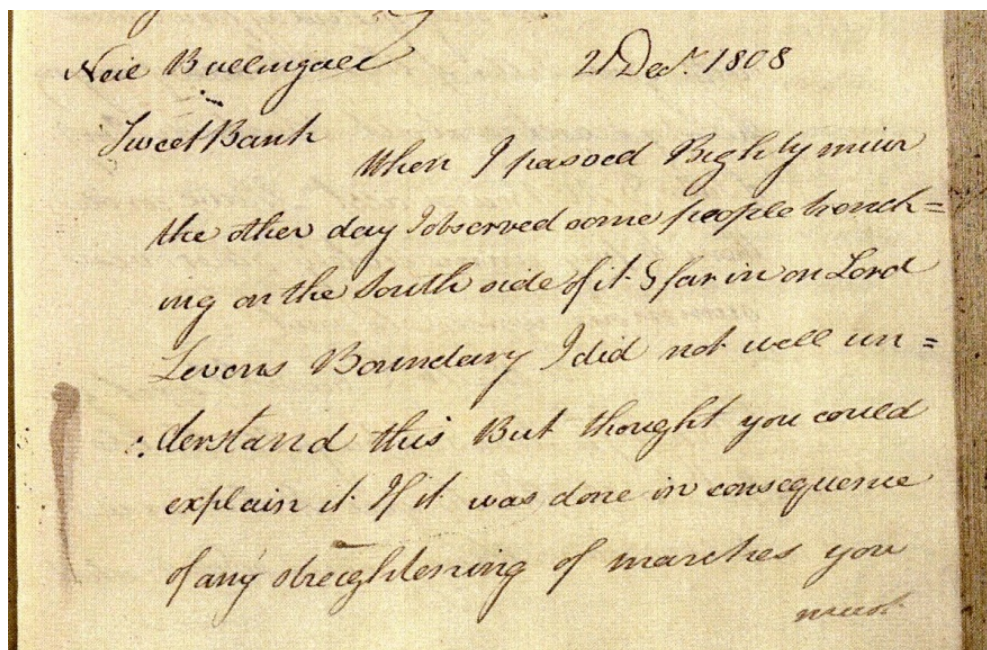 Neil Ballingall 21 Decr. 1808
Sweet Bank
When I passed Bighty muir
the other day I observed some people trench=
ing on the South side of it & far in on Lord
Levens Boundary I did not well un=
derstand this But thought you could
explain it If it was done in consequence
of any streightening of marches you
must